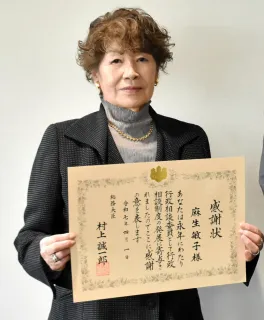 感謝状
麻生敏子様
あなたは永年にわたり
行政相談委員として行政
相談制度の発展に寄与さ
れましたのでここに感謝
の意を表します
令和七年四月一日
総務大臣
村上誠一郎